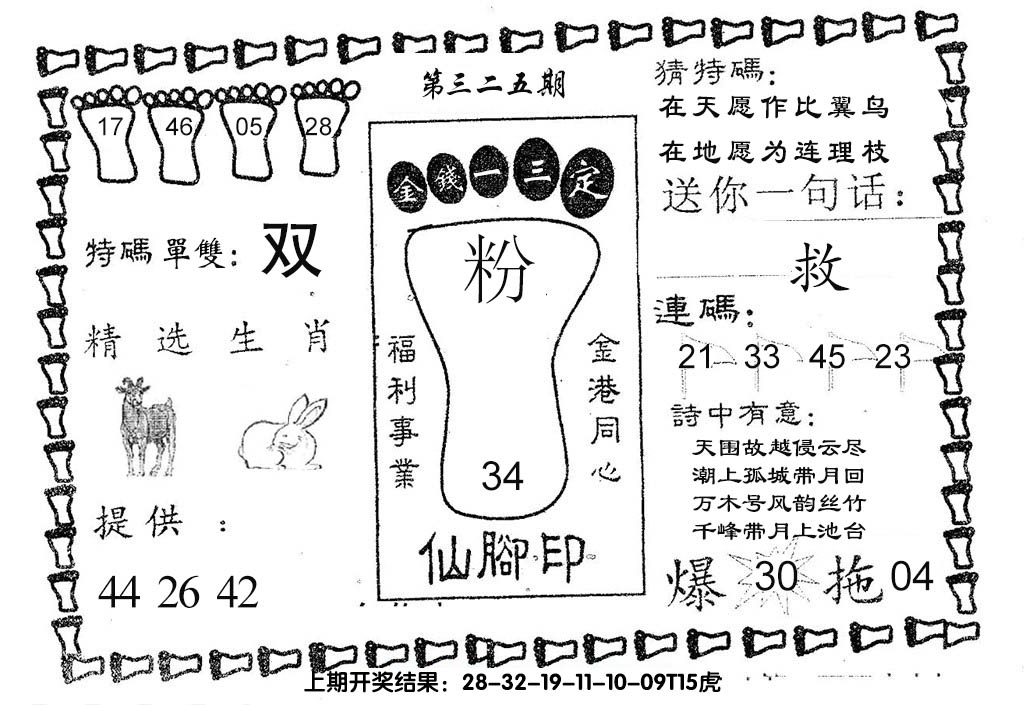 第三二五期
17 46 05 28
特碼單雙：双
精选生肖
提供：
44 26 42
金錢一三定
粉
福利事業
金港同心
34
仙腳印
猜特碼：
在天愿作比翼鸟
在地愿为连理枝
送你一句话：
救
連碼：
21 33 45 23
詩中有意：
天围故越侵云尽
潮上孤城带月回
万木号风韵丝竹
千峰带月上池台
爆 30 拖 04
上期开奖结果：28-32-19-11-10-09T15虎